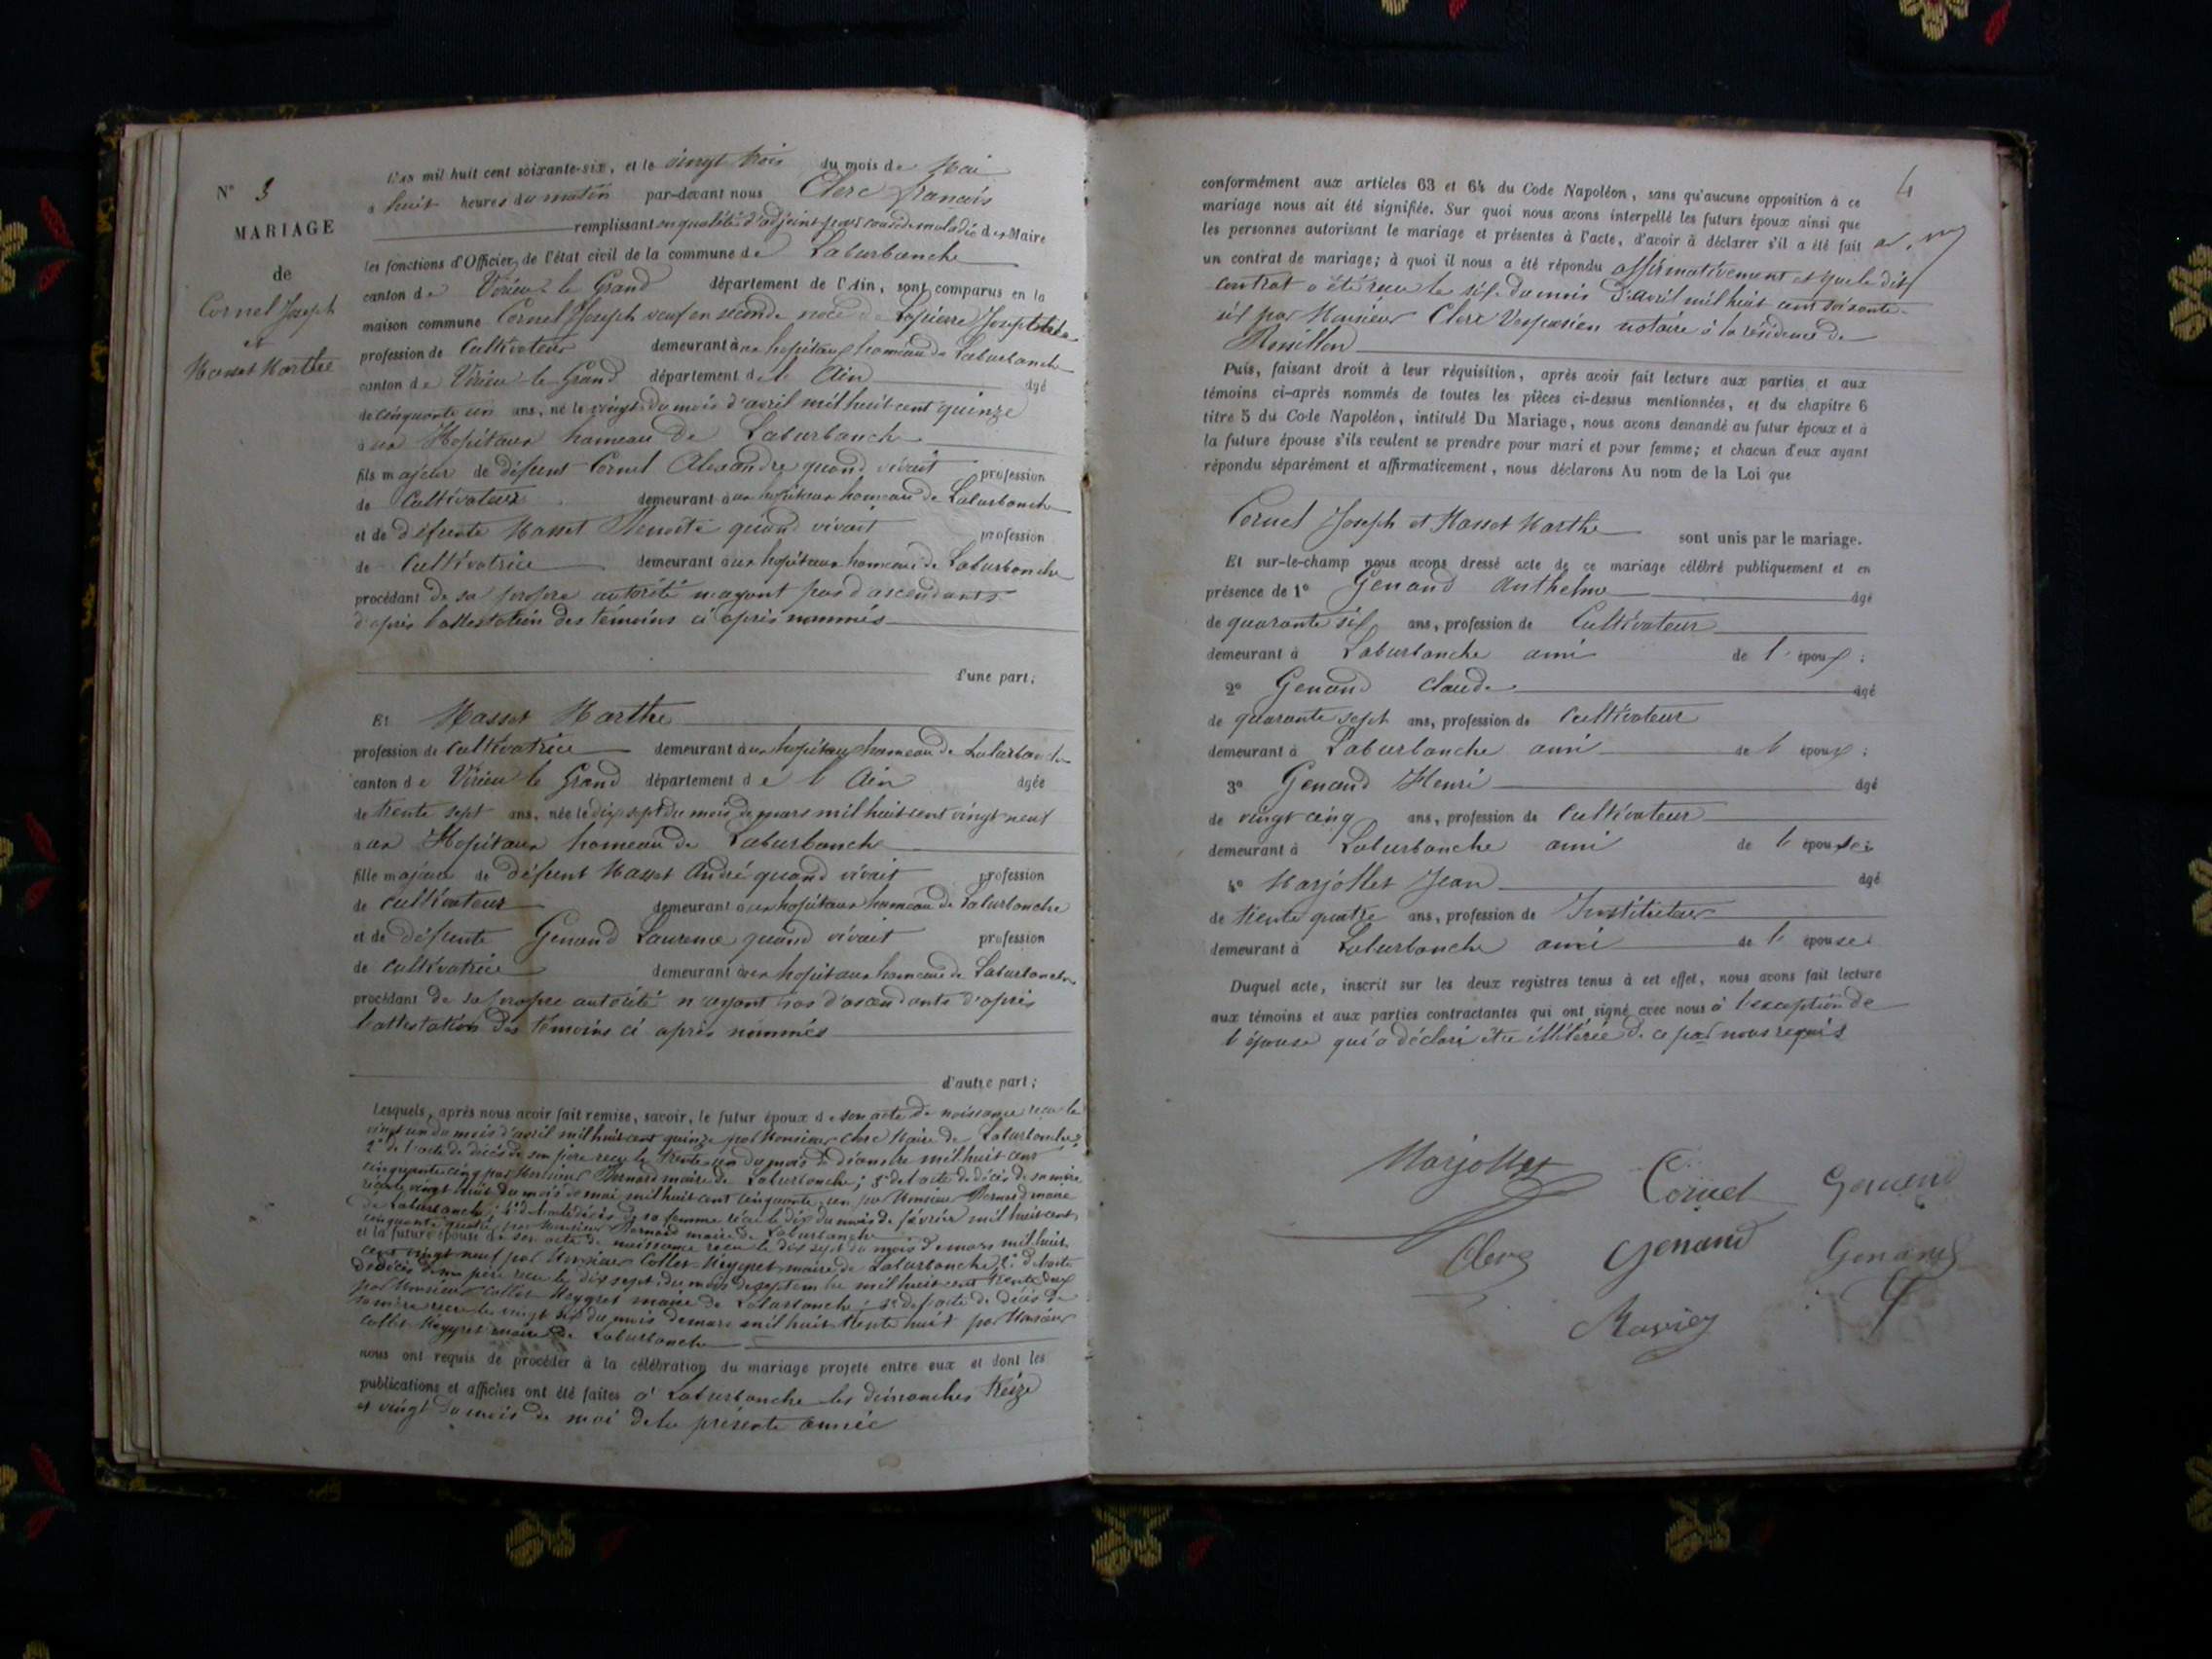 N° 3
MARIAGE
de
Cornel Joseph
et
Masset Marthe
L'an mil huit cent soixante-six, et le vingt trois du mois de Mai
à huit heures du matin par-devant nous Clerc François
remplissant en qualité d'adjoint pour cause de maladie de Maire
les fonctions d'Officier de l'état civil de la commune de Laburbanche
canton de Virieu le Grand département de l'Ain, sont comparus en la
maison commune Cornel Joseph veuf en séconde noce de Lapierre Josephte
profession de Cultivateur demeurant aux hopitaux hameau de Laburbanche
canton de Virieu le Grand département de l' Ain âgé
de cinquante un ans, né le vingt du mois d'avril mil huit cent quinze
aux Hopitaux hameau de Laburbanche
fils majeur de défunt Cornel Alexandre quand vivait profession
de Cultivateur demeurant aux hopitaux hameau de Laburbanche
et de défunte Masset Benoite quand vivait profession
de Cultivatrice demeurant aux hopitaux hameau de Laburbanche
procédant de sa propre autorité n'ayant pas d'ascendants
d'après l'attestation des témoins ci après nommés
d'une part;
Et Masset Marthe
profession de Cultivatrice demeurant aux hopitaux hameau de Laburbanche
canton de Virieu le Grand département de l' Ain âgée
de trente sept ans, née le dix sept du mois de mars mil huit cent vingt neuf
aux Hopitaux hameau de Laburbanche
fille majeure de défunt Masset André quand vivait profession
de cultivateur demeurant aux hopitaux hameau de Laburbanche
et de défunte Genand Laurence quand vivait profession
de cultivatrice demeurant aux hopitaux hameau de Laburbanche
procédant de sa propre autorité n'ayant pas d'ascendants d'après
l'attestation des témoins ci après nommés
d'autre part;
Lesquels, après nous avoir fait remise, savoir, le futur époux de son acte de naissance reçu le
vingt un du mois d'avril mil huit cent quinze par Monsieur Clerc Maire de Laburbanche;
2° de l'acte de décès de son père reçu le trente un du mois de décembre mil huit cent
cinquante cinq par Monsieur Bernard maire de Laburbanche; 3° de l'acte de décès de sa mère
reçu le vingt huit du mois de mai mil huit cent cinquante un par Monsieur Bernard maire
de Laburbanche; 4° de l'acte de décès de sa femme reçu le dix du mois de février mil huit cent
cinquante quatre par Monsieur Bernard maire de Laburbanche
et la future épouse de son acte de naissance reçu le dix sept du mois de mars mil huit
cent vingt neuf par Monsieur Collet Meygret maire de Laburbanche; 2° de l'acte
de décès de son père reçu le dix sept du mois de septembre mil huit cent trente deux
par Monsieur Collet Meygret maire de Laburbanche; 3° de l'acte de décès de
sa mère reçu le vingt six du mois de mars mil huit trente huit par Monsieur
Collet Meygret maire de Laburbanche
nous ont requis de procéder à la célébration du mariage projeté entre eux et dont les
publications et affiches ont été faites à Laburbanche les dimanches treize
et vingt du mois de mai de la présente année
4
conformément aux articles 63 et 64 du Code Napoléon, sans qu'aucune opposition à ce
mariage nous ait été signifiée. Sur quoi nous avons interpellé les futurs époux ainsi que
les personnes autorisant le mariage et présentes à l'acte, d'avoir à déclarer s'il a été fait
un contrat de mariage; à quoi il nous a été répondu affirmativement et que le dit
contrat a été reçu le six du mois d'avril mil huit cent soixante-
six par Monsieur Clerc Vespasien notaire à la résidence de
Rossillon
Puis, faisant droit à leur réquisition, après avoir fait lecture aux parties et aux
témoins ci-après nommés de toutes les pièces ci-dessus mentionnées, et du chapitre 6
titre 5 du Code Napoléon, intitulé Du Mariage, nous avons demandé au futur époux et à
la future épouse s'ils veulent se prendre pour mari et pour femme; et chacun d'eux ayant
répondu séparément et affirmativement, nous déclarons Au nom de la Loi que
Cornel Joseph et Masset Marthe sont unis par le mariage.
Et sur-le-champ nous avons dressé acte de ce mariage célébré publiquement et en
présence de 1° Genand Anthelme âgé
de quarante six ans, profession de Cultivateur
demeurant à Laburbanche ami de l' époux;
2° Genand Claude âgé
de quarante sept ans, profession de Cultivateur
demeurant à Laburbanche ami de l' époux;
3° Genand Henri âgé
de vingt cinq ans, profession de Cultivateur
demeurant à Laburbanche ami de l' épouse;
4° Marjollet Jean âgé
de trente quatre ans, profession de Instituteur
demeurant à Laburbanche ami de l' épouse
Duquel acte, inscrit sur les deux registres tenus à cet effet, nous avons fait lecture
aux témoins et aux parties contractantes qui ont signé avec nous à l'exception de
l'épouse qui a déclaré être illitérée de ce par nous requis
Marjollet Cornel Genand
Clerc Genand Genand